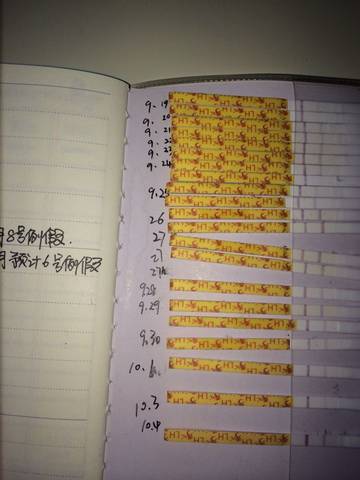 月8号例假.
月预计6号例假
9.19
9.20
9.21
9.22
9.23
9.24
9.25
26
27
27
9.28
9.29
9.30
10.1
10.3
10.4
LH